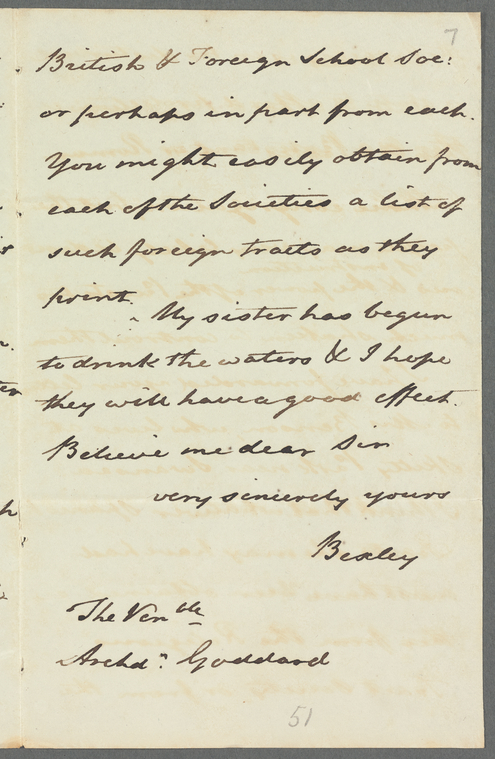 7
British & Foreign School Soc:
or perhaps in part from each.
You might easily obtain from
each of the Societies a list of
such foreign tracts as they
print.
My sister has begun
to drink the waters & I hope
they will have a good effect.
Believe me dear Sir
very sincerely yours
Bexley
The Venble
Archdn. Goddard
51